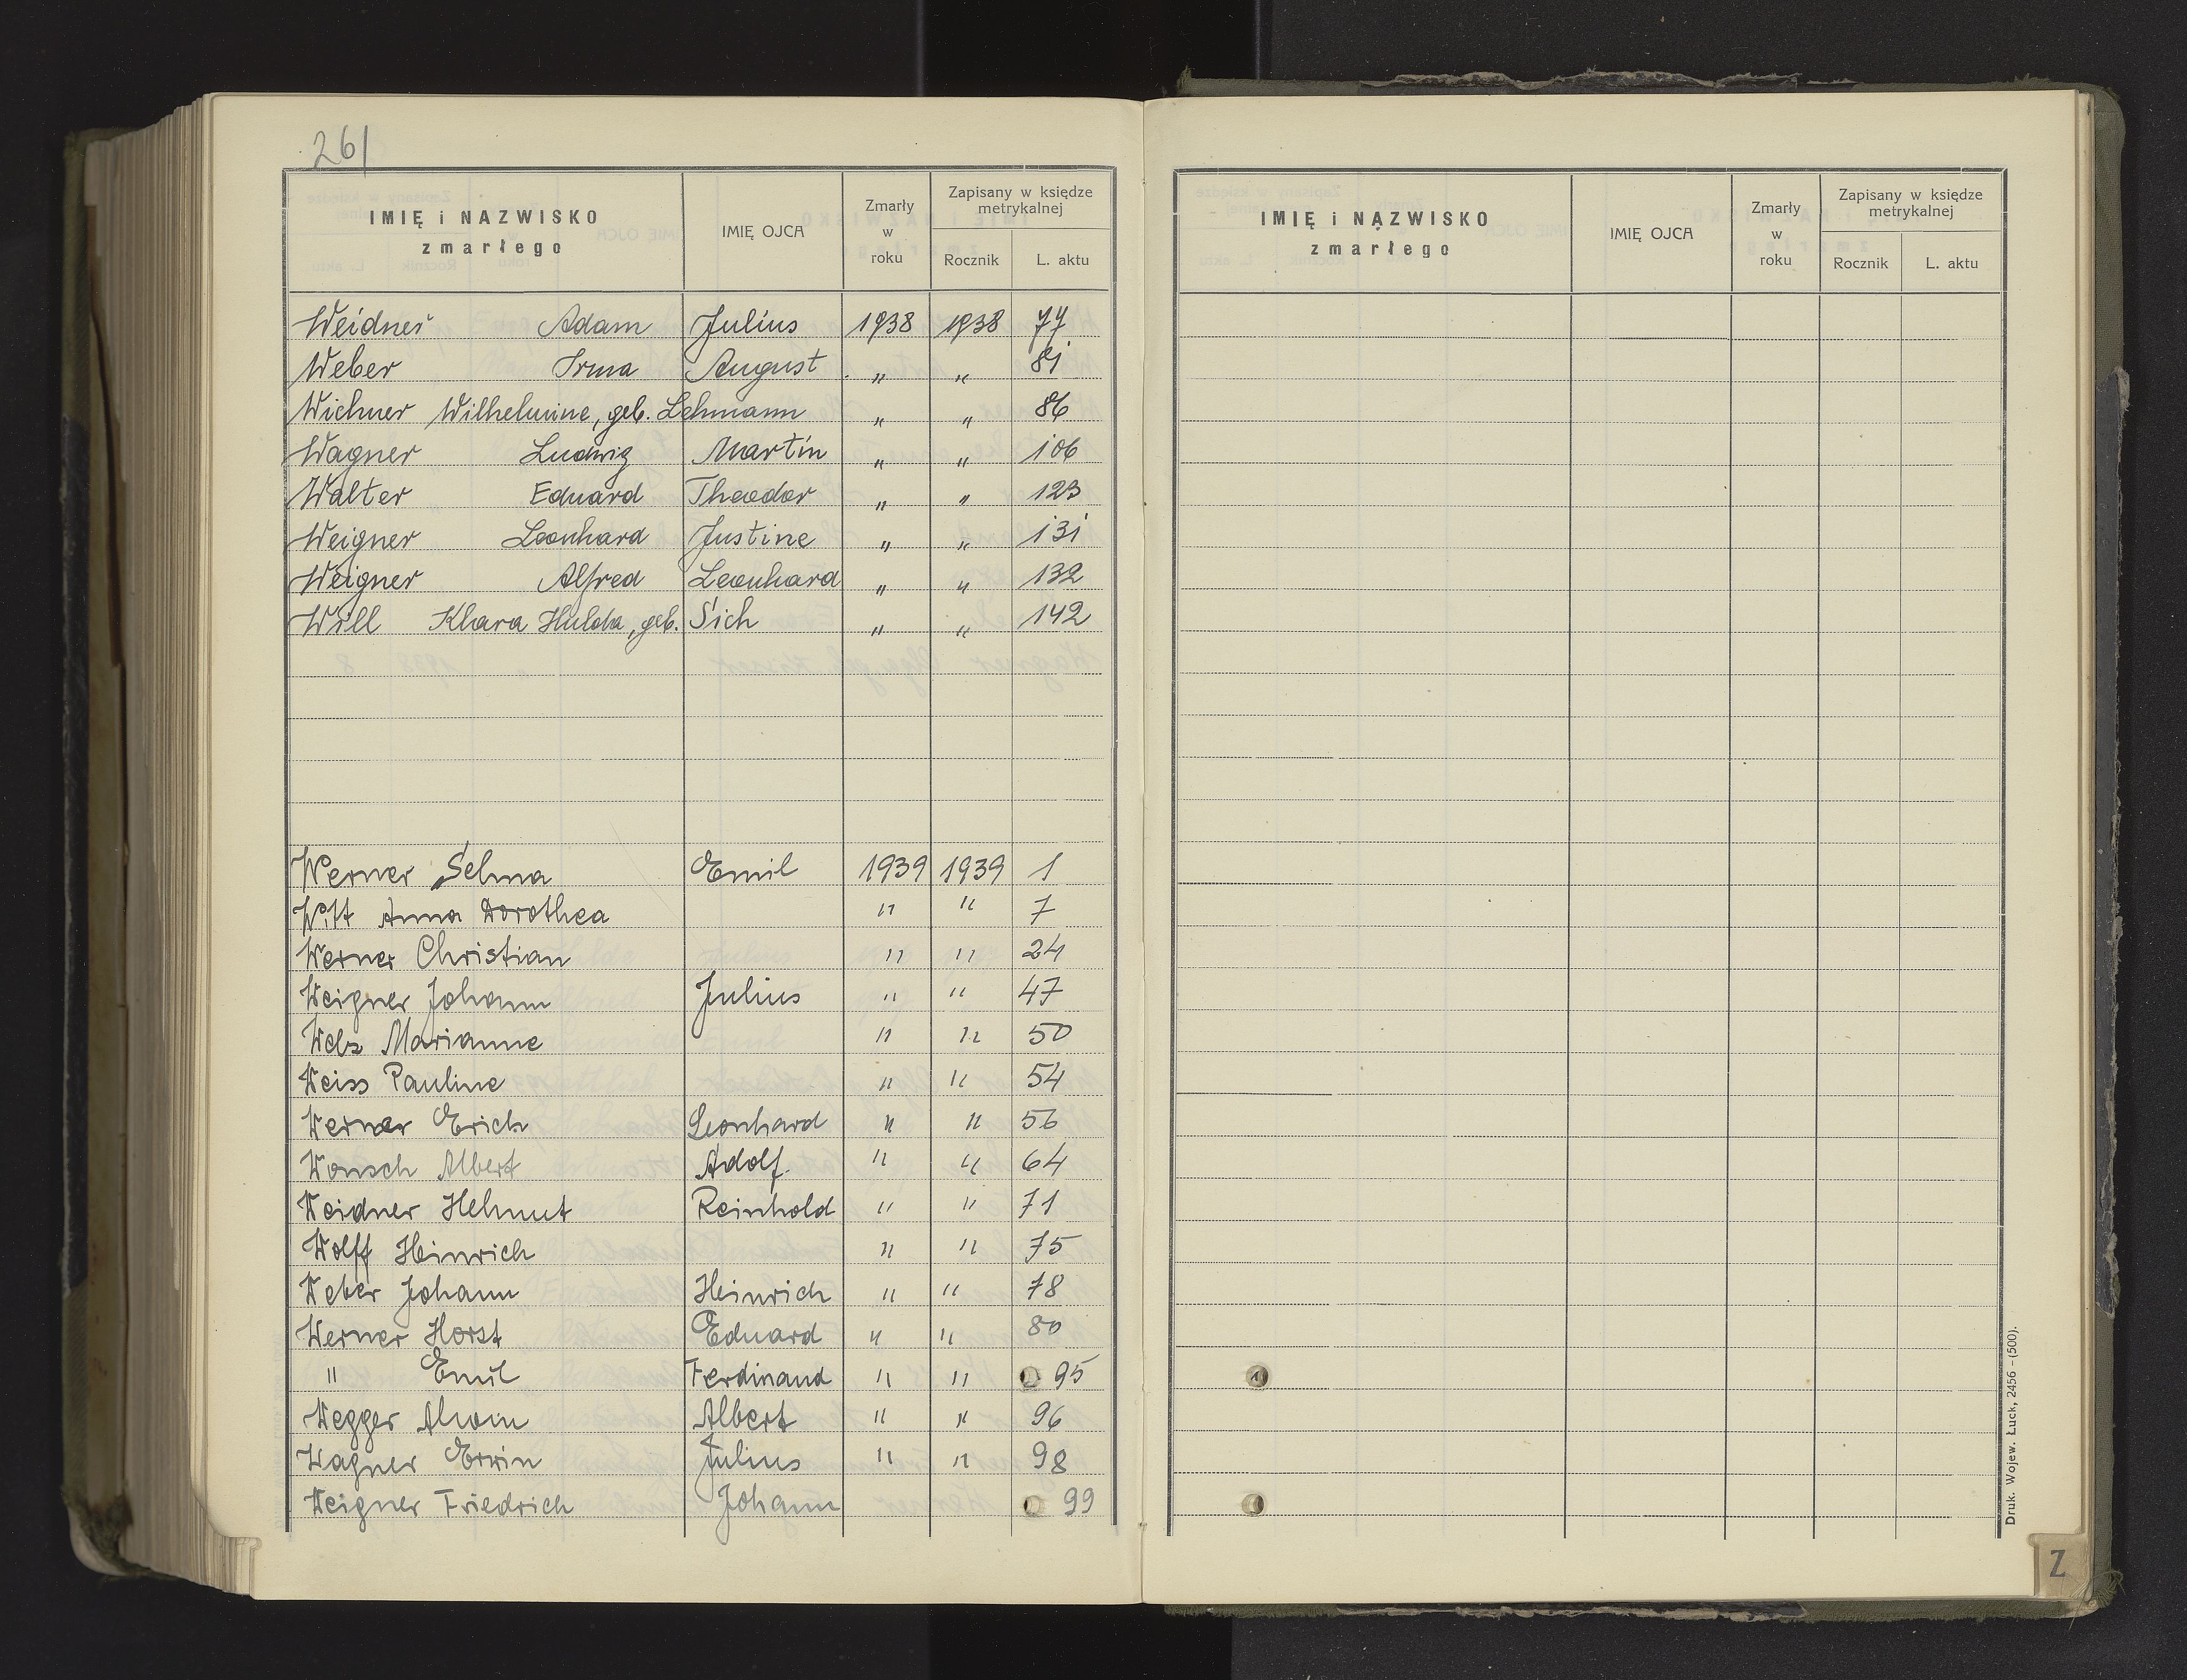 261
IMIĘ i NAZWISKO
zmarłego
IMIĘ OJCA
Zmarły
w
roku
Zapisany w księdze
metrykalnej
Rocznik
L. aktu
Weidner Adam Julius 1938 1938 77
Weber Irma August " " 81
Wichner Wilhelmine, geb. Lehmann " " 86
Wagner Ludwig Martin " " 106
Walter Eduard Theodor " " 123
Weigner Leonhard Justine " " 131
Weigner Alfred Leonhard " " 132
Will Klara Hulda, geb. Sich " " 142
Werner Selma Emil 1939 1939 1
Witt Anna Dorothea " " 7
Werner Christian " " 24
Weigner Johann Julius " " 47
Marianne " " 50
Weiss Pauline " " 54
Werner Erich Leonhard " " 56
Wonsch Albert Adolf " " 64
Weidner Helmut Reinhold " " 71
Wolff Heinrich " " 75
Weber Johann Heinrich " " 78
Werner Horst Eduard " " 80
" Emil Ferdinand " " 95
Wegger Alwin Albert " " 96
Wagner Erwin Julius " " 98
Weigner Friedrich Johann 99
IMIĘ i NAZWISKO
zmarłego
IMIĘ OJCA
Zmarły
w
roku
Zapisany w księdze
metrykalnej
Rocznik
L. aktu
Druk. Wojew. Łuck, 2456 – (500).
Z